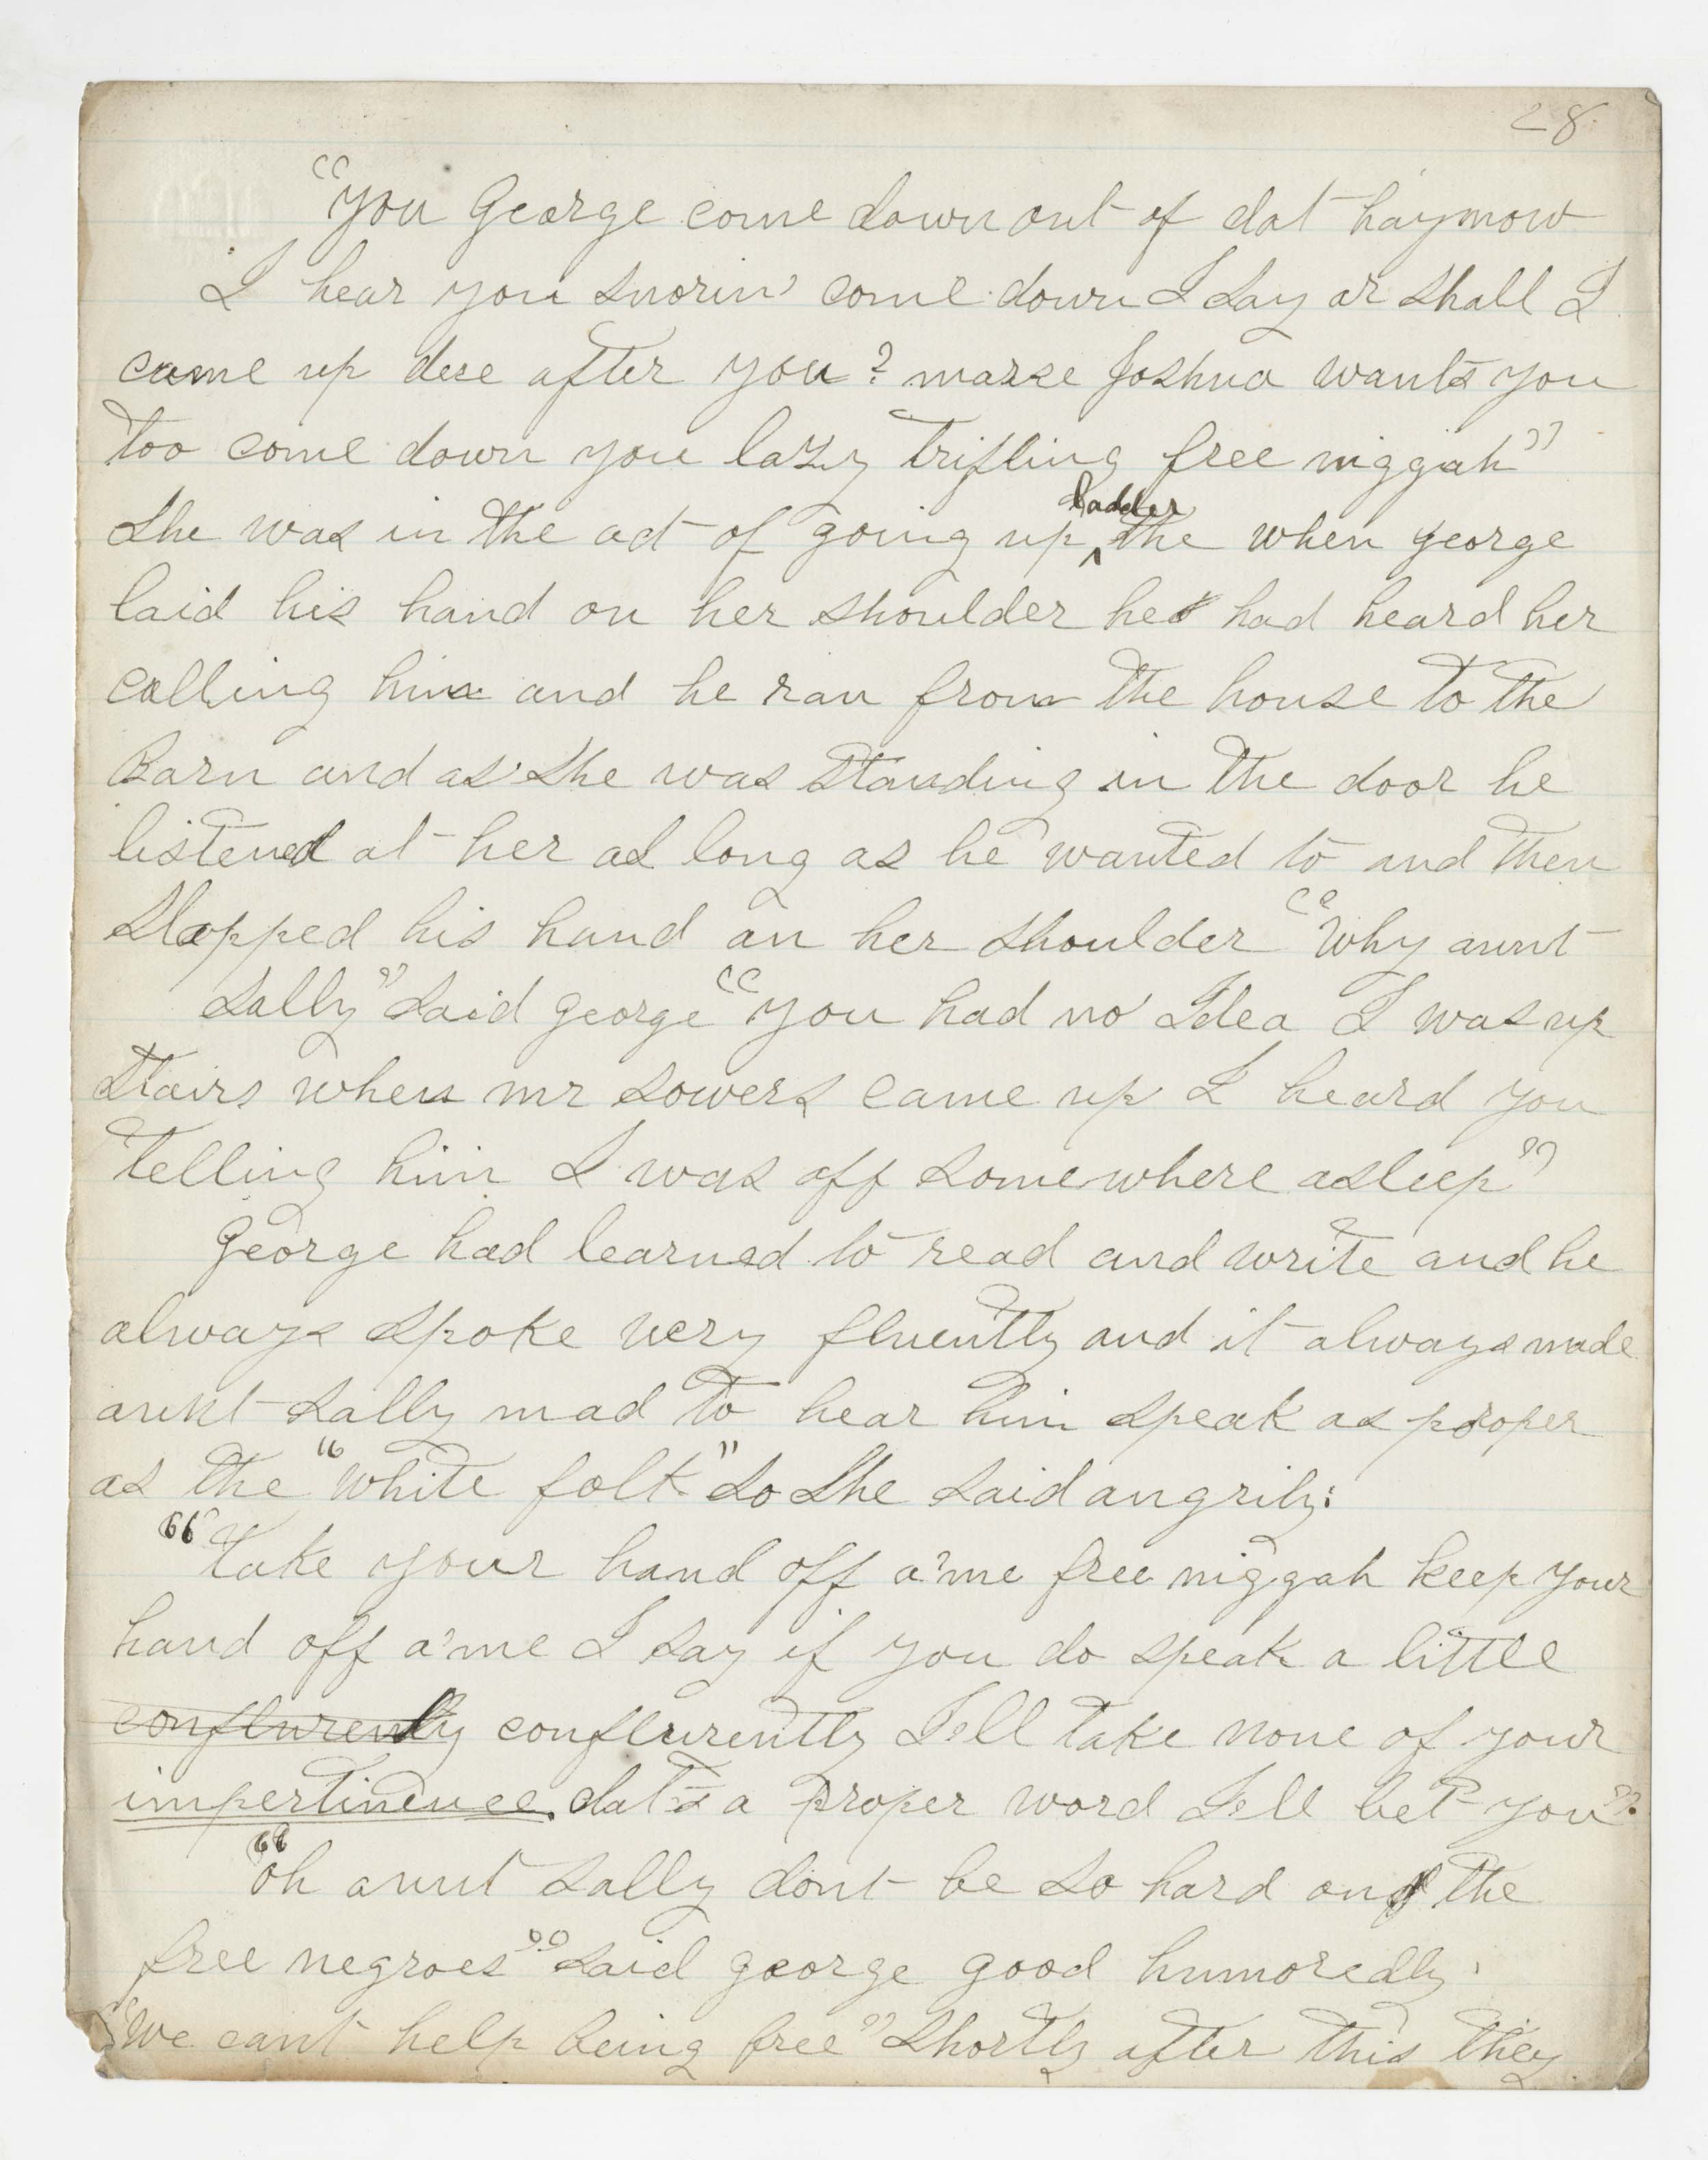 28.
"You George come down out of dat haymow
I hear you snorin' come down I say or shall I
come up dere after you? marse Joshua wants you
too come down you lazy trifling free niggah"
She was in the act of going up ladder the when george
laid his hand on her shoulder he had heard her
calling him and he ran from the house to the
Barn and as she was standing in the door he
listened at her as long as he wanted to and then
Slapped his hand on her shoulder "Why aunt
Sally" said george "you had no Idea I was up
stairs when mr sowers came up I heard you
telling him I was off somewhere asleep"
George had learned to read and write and he
always spoke very fluently and it always made
aunt Sally mad to hear him speak as proper
as the "white folk" so she said angrily:
"take your hand off a'me free niggah keep your
hand off a'me I say if you do speak a little
conflurently conflurently I'll take none of your
impertinence. dat's a proper word I'll bet you".
"oh aunt Sally dont be so hard on the
free negroes" said george good humoredly.
"We cant help being free" Shortly after this they